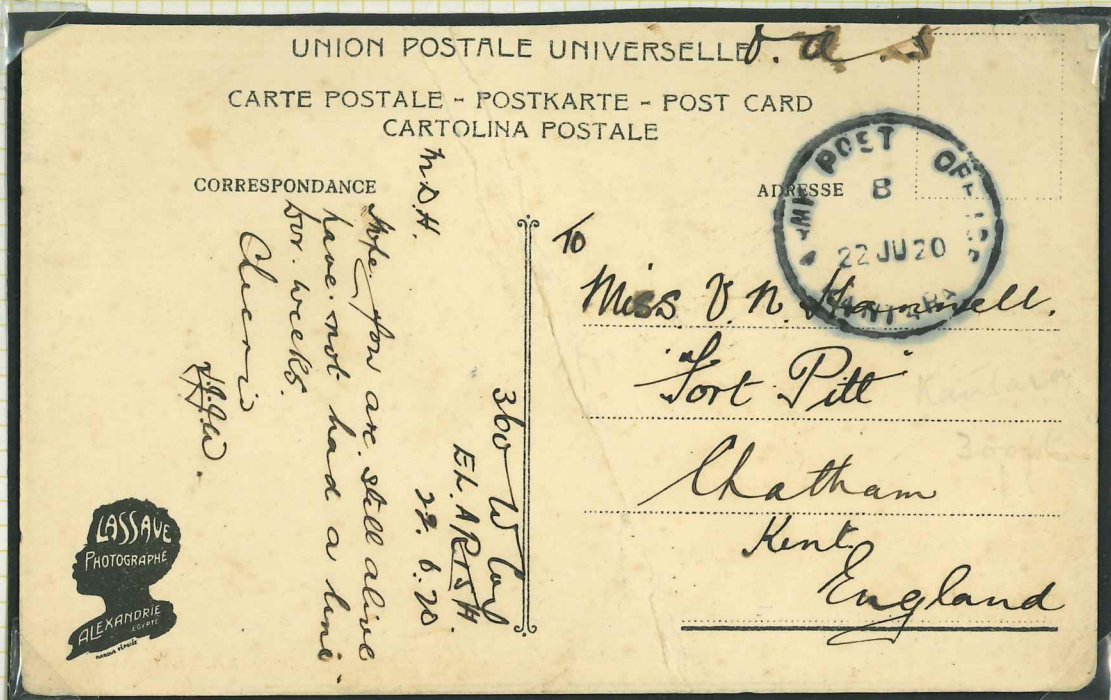 UNION POSTALE UNIVERSELLE
O. a. s
CARTE POSTALE - POSTKARTE - POST CARD
CARTOLINA POSTALE
CORRESPONDANCE
ADRESSE
ARMY POST OFFICE
B
22 JU 20
KANTARA
360 W Coy
EL. ARISH.
22. 6. 20
M.D.H.
Hope you are still alive
have not had a line
for weeks.
Cheerio
To
Miss. V. N. Hammell.
"Fort Pitt"
Chatham
Kent
England
Kantara
LASSAVE
PHOTOGRAPHE
ALEXANDRIE
EGYPTE